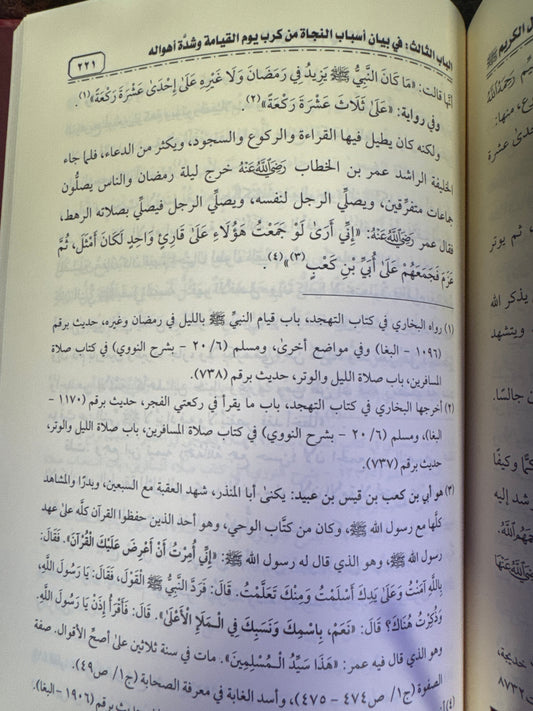 الباب الثالث: في بيان أسباب النجاة من كرب يوم القيامة وشدَّة أهواله
٢٢١
أنَّها قالت: «مَا كَانَ النَّبِيُّ ﷺ يَزِيدُ فِي رَمَضَانَ وَلَا غَيْرِهِ عَلَىٰ إِحْدَىٰ عَشْرَةَ رَكْعَةً»(١).
وفي رواية: «عَلَىٰ ثَلَاثَ عَشْرَةَ رَكْعَةً»(٢).
ولكنه كان يطيل فيها القراءة والركوع والسجود، ويكثر من الدعاء، فلما جاء
الخليفة الراشد عمر بن الخطاب رَضِيَ اللَّهُ عَنْهُ خرج ليلة رمضان والناس يصلُّون
جماعات متفرِّقين، ويصلِّي الرجل لنفسه، ويصلِّي الرجل فيصلِّي بصلاته الرهط،
فقال عمر رَضِيَ اللَّهُ عَنْهُ: «إِنِّي أَرَىٰ لَوْ جَمَعْتُ هَؤُلَاءِ عَلَىٰ قَارِئٍ وَاحِدٍ لَكَانَ أَمْثَلَ، ثُمَّ
عَزَمَ فَجَمَعَهُمْ عَلَىٰ أُبَيِّ بْنِ كَعْبٍ(٣)»(٤).
(١) رواه البخاري في كتاب التهجد، باب قيام النبيِّ ﷺ بالليل في رمضان وغيره، حديث برقم
(١٠٩٦ – البغا) وفي مواضع أخرىٰ، ومسلم (٦/ ٢٠ – بشرح النووي) في كتاب صلاة
المسافرين، باب صلاة الليل والوتر، حديث برقم (٧٣٨).
(٢) أخرجها البخاري في كتاب التهجد، باب ما يقرأ في ركعتي الفجر، حديث برقم (١١٧٠ –
البغا)، ومسلم (٦/ ٢٠ – بشرح النووي) في كتاب صلاة المسافرين، باب صلاة الليل والوتر،
حديث برقم (٧٣٧).
(٣) هو أبي بن كعب بن قيس بن عبيد: يكنىٰ أبا المنذر، شهد العقبة مع السبعين، وبدرًا والمشاهد
كلَّها مع رسول الله ﷺ، وكان من كتَّاب الوحي، وهو أحد الذين حفظوا القرآن كلَّه علىٰ عهد
رسول الله ﷺ، وهو الذي قال له رسول الله ﷺ: «إِنِّي أُمِرْتُ أَنْ أَعْرِضَ عَلَيْكَ الْقُرْآنَ». فَقَالَ:
بِاللَّهِ آمَنْتُ وَعَلَىٰ يَدِكَ أَسْلَمْتُ وَمِنْكَ تَعَلَّمْتُ. قَالَ: فَرَدَّ النَّبِيُّ ﷺ الْقَوْلَ، فَقَالَ: يَا رَسُولَ اللَّهِ،
وَذُكِرْتُ هُنَاكَ؟ قَالَ: «نَعَمْ، بِاسْمِكَ وَنَسَبِكَ فِي الْمَلَإِ الْأَعْلَىٰ». قَالَ: فَاقْرَأْ إِذَنْ يَا رَسُولَ اللَّهِ.
وهو الذي قال فيه عمر: «هَذَا سَيِّدُ الْمُسْلِمِينَ». مات في سنة ثلاثين علىٰ أصحِّ الأقوال. صفة
الصفوة (ج١/ ص٤٧٤ – ٤٧٥)، وأسد الغابة في معرفة الصحابة (ج١/ ص٤٩).